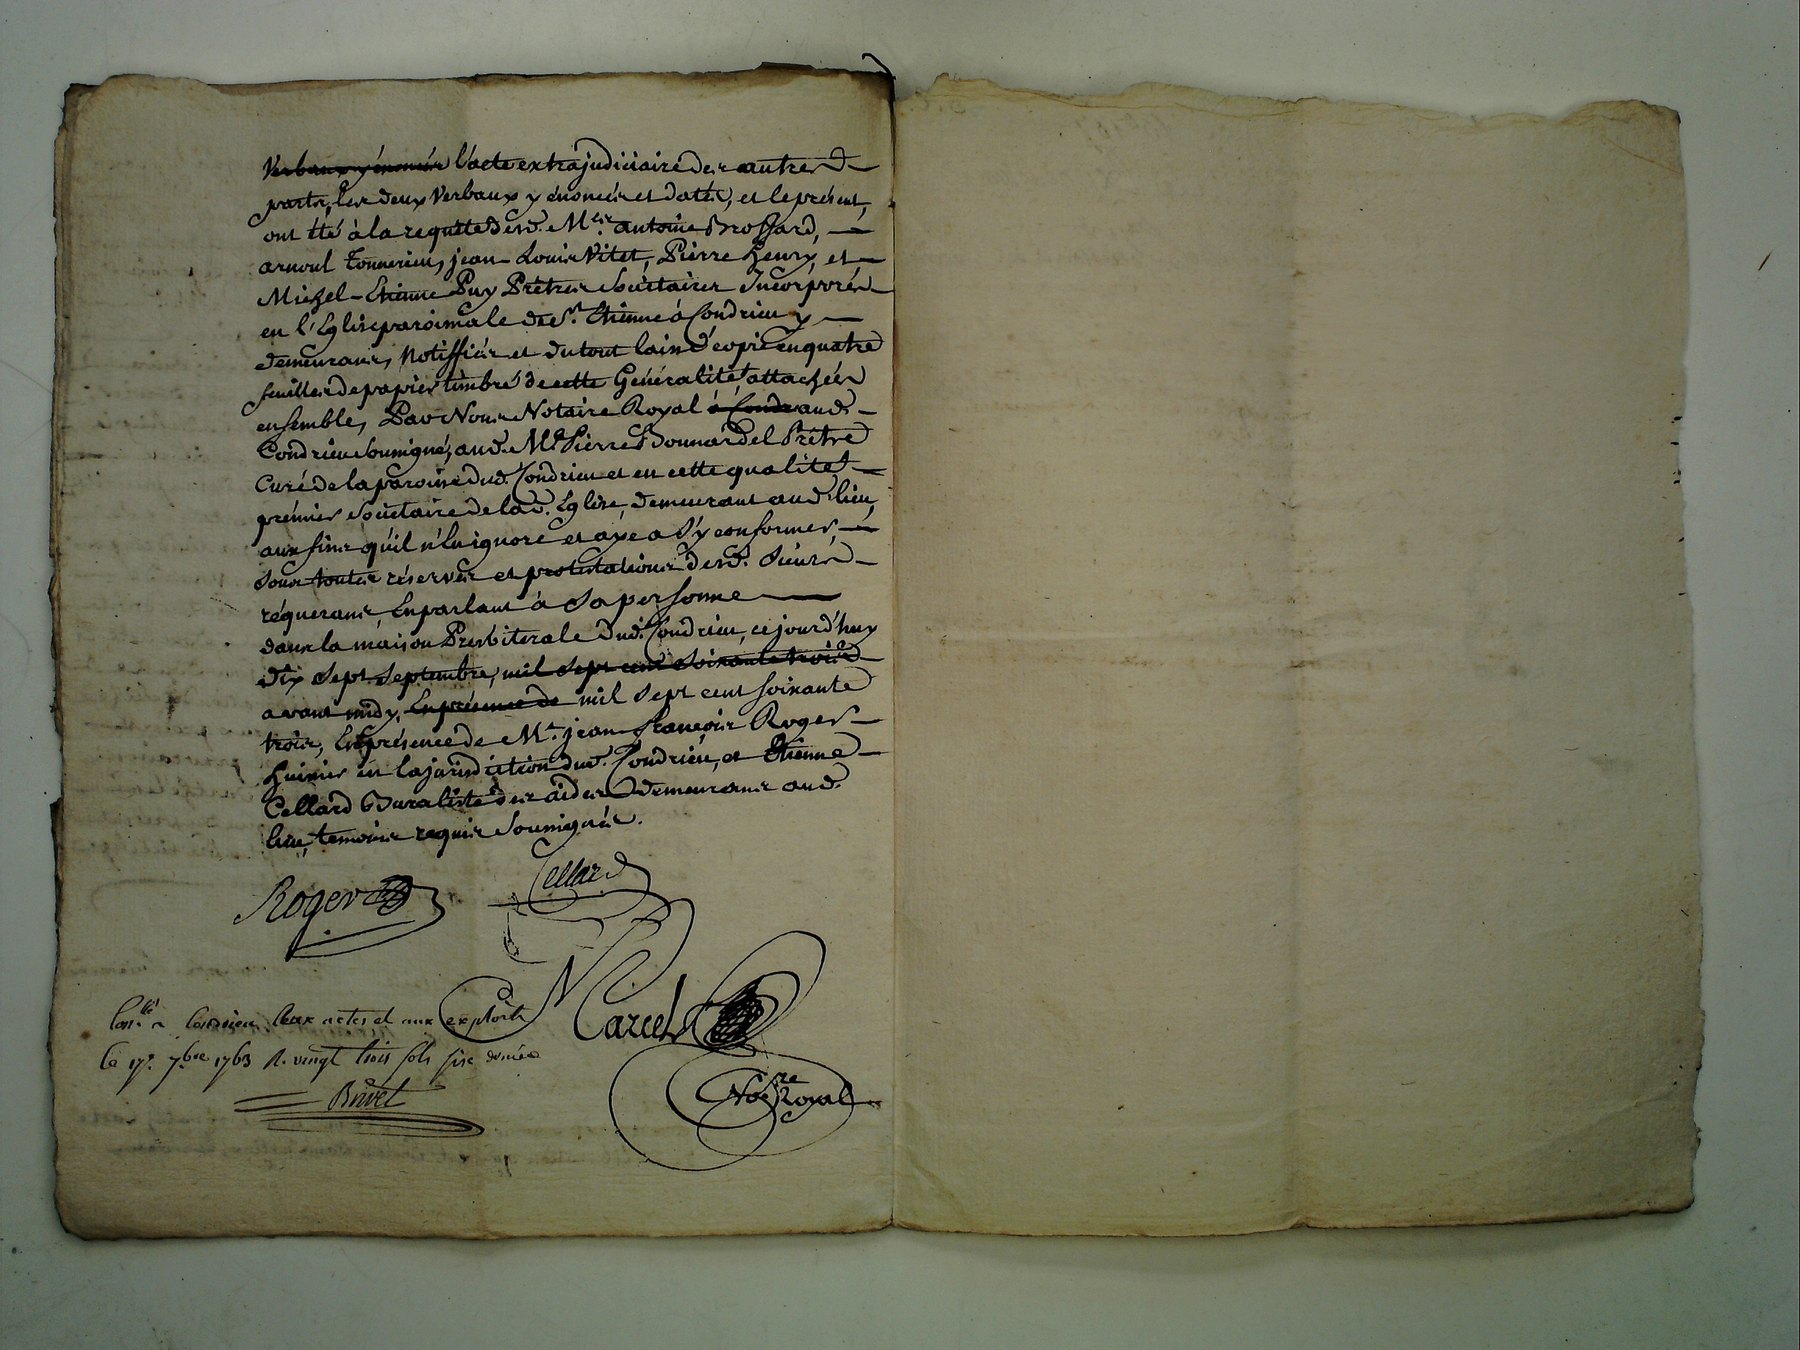 Verbaux y énoncés l'acte extrajudiciaire des autres
parts, les deux Verbaux y énoncés et datés, et le présent,
ont été à la requête desd. M.rs antoine Brossard,
arnoul Tonnerieu, jean-Louis Vitet, Pierre henry, et
Michel-Etienne Puy Prêtres sociétaires Incorporés
en l'Eglise paroissiale de S.t Etienne à Condrieu y
demeurans, Notiffiés et du tout laissé copie en quatre
feuilles de papier timbré de cette Généralité attachées
ensemble, Par Nous Notaire Royal à Condr aud.
Condrieu soussigné, aud. M.e Pierre Bonnardel Prêtre
Curé de la paroisse dud. Condrieu et en cette qualité
prémier sociétaire de lad. Eglise, demeurant aud. lieu,
aux fins qu'il n'en ignore et aye a s'y conformer,
sous toutes réserves et protestations desd. sieurs
réquerans, En parlant à sa personne
dans la maison Presbiterale dud. Condrieu, cejourd'huy
dix sept septembre, mil sept cent soixante trois
avant midy, En présence de mil sept cent soixante
trois, En présence de M.e jean françois Roger
huissier en la jurisdiction dud. Condrieu, et Etienne
Cellard Buraliste des aides demeurans aud.
lieu, temoins requis soussignés.
Roger
Cellard
Marcel
Con.lé a Condrieu aux actes et aux exploits
le 17.e 7.bre 1763 R. vingt trois sols six deniers
Buvet
No.re Royal